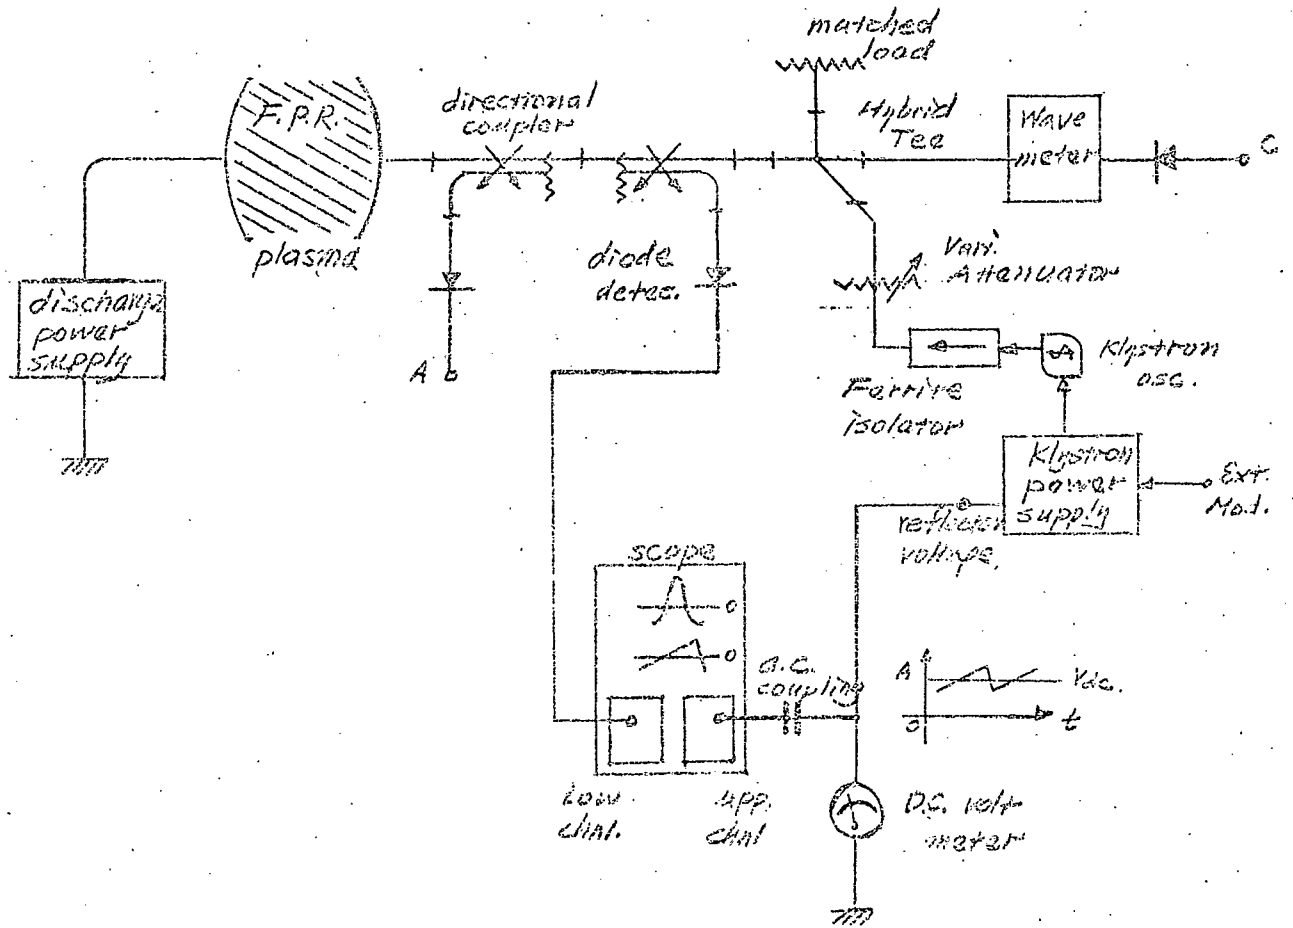 matched
load
F.P.R.
directional
coupler
Hybrid
Tee
Wave
meter
C
plasma
diode
detec.
Vari.
Attenuator
discharge
power
supply
A
Klystron
osc.
Ferrire
isolator
Klystron
power
supply
Ext.
Mod.
reflector
voltage.
scope
o
o
a.c.
coupling
A
Vdc.
o
t
Low
chnl.
upp.
chnl
D.C. volt
meter